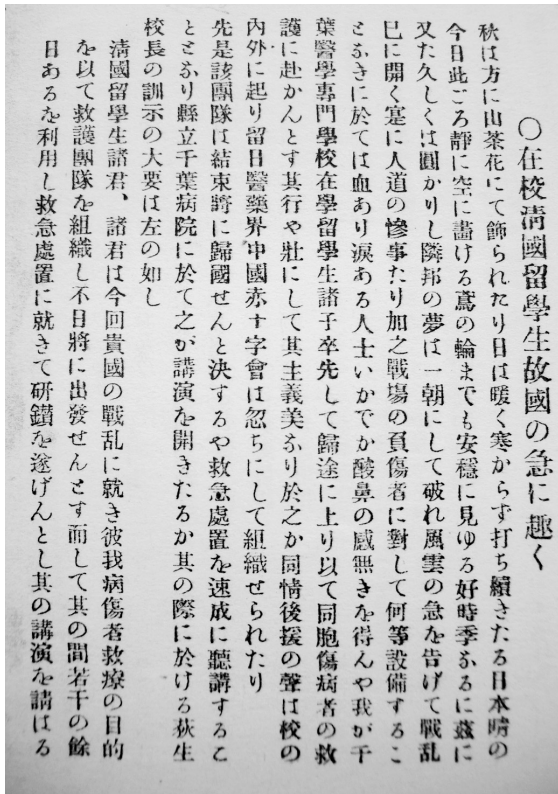 ○在校淸國留學生故國の急に趣く
秋は方に山茶花にて飾られたり日は暖く寒からず打ち續きたる日本晴の
今日此ごろ靜に空に畵ける鳶の輪までも安穩に見ゆる好時季なるに玆に
又た久しくは圓かりし隣邦の夢は一朝にして破れ風雲の急を告げて戰乱
已に開く寔に人道の慘事たり加之戰場の負傷者に對して何等設備するこ
となきに於ては血あり涙ある人士いかでか酸鼻の感無きを得んや我が千
葉醫學專門學校在學留學生諸子卒先して歸途に上り以て同胞傷病者の救
護に赴かんとす其行や壯にして其主義美なり於之か同情後援の聲は校の
内外に起り留日醫藥界中國赤十字會は忽ちにして組織せられたり
先是該團隊は結束將に歸國せんと決するや救急處置を速成に聽講するこ
ととなり縣立千葉病院に於て之が講演を開きたるか其の際に於ける荻生
校長の訓示の大要は左の如し
淸國留學生諸君、諸君は今回貴國の戰乱に就き彼我病傷者救療の目的
を以て救護團隊を組織し不日將に出發せんとす而して其の間若干の餘
日あるを利用し救急處置に就きて研鑽を遂げんとし其の講演を請はる